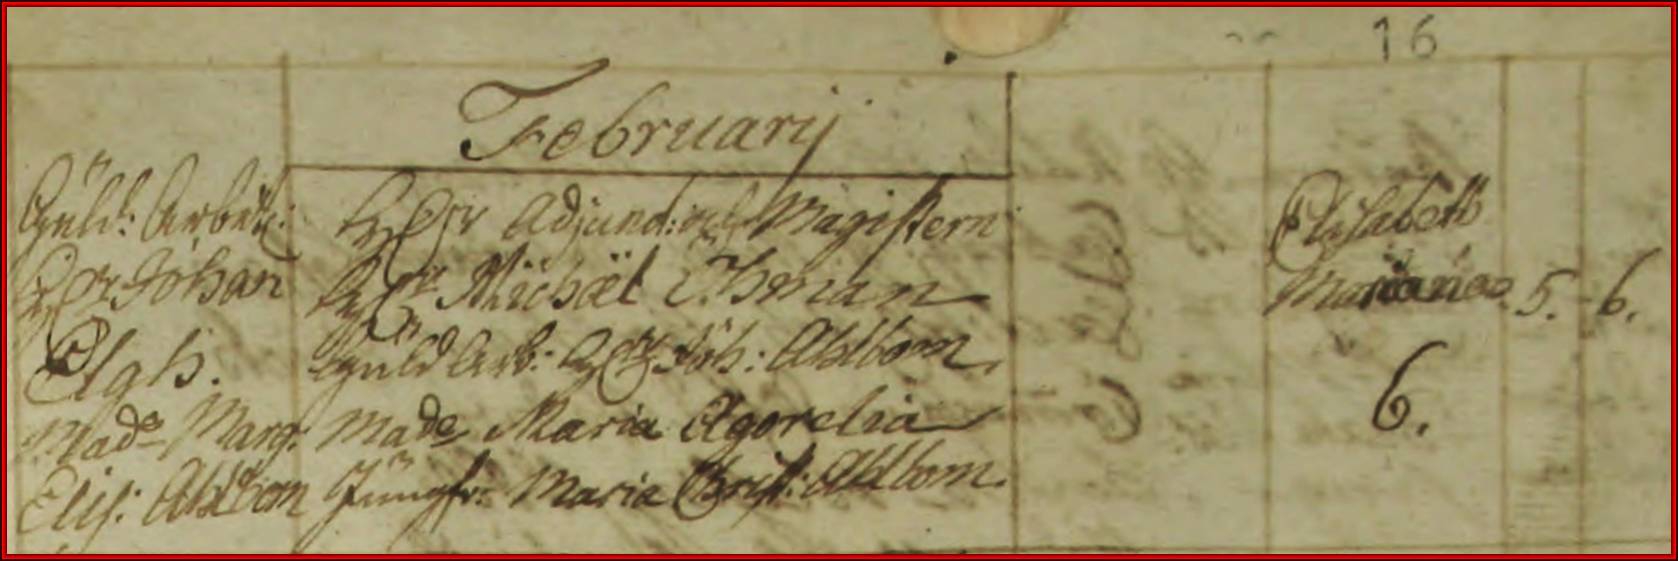 16
Februarij
Guld: Arbet:
Herr Johan
Elgh.
Made Marg:
Elis: Ahlbom
Herr Adjunct: och Magistern
Herr Michäel Öhman
Guld Arb: Herr Joh: Ahlbom
Made Maria Agorelia
Jungfr: Maria Christ: Ahlbom.
Elisabeth
Mariana 5. 6.
6.